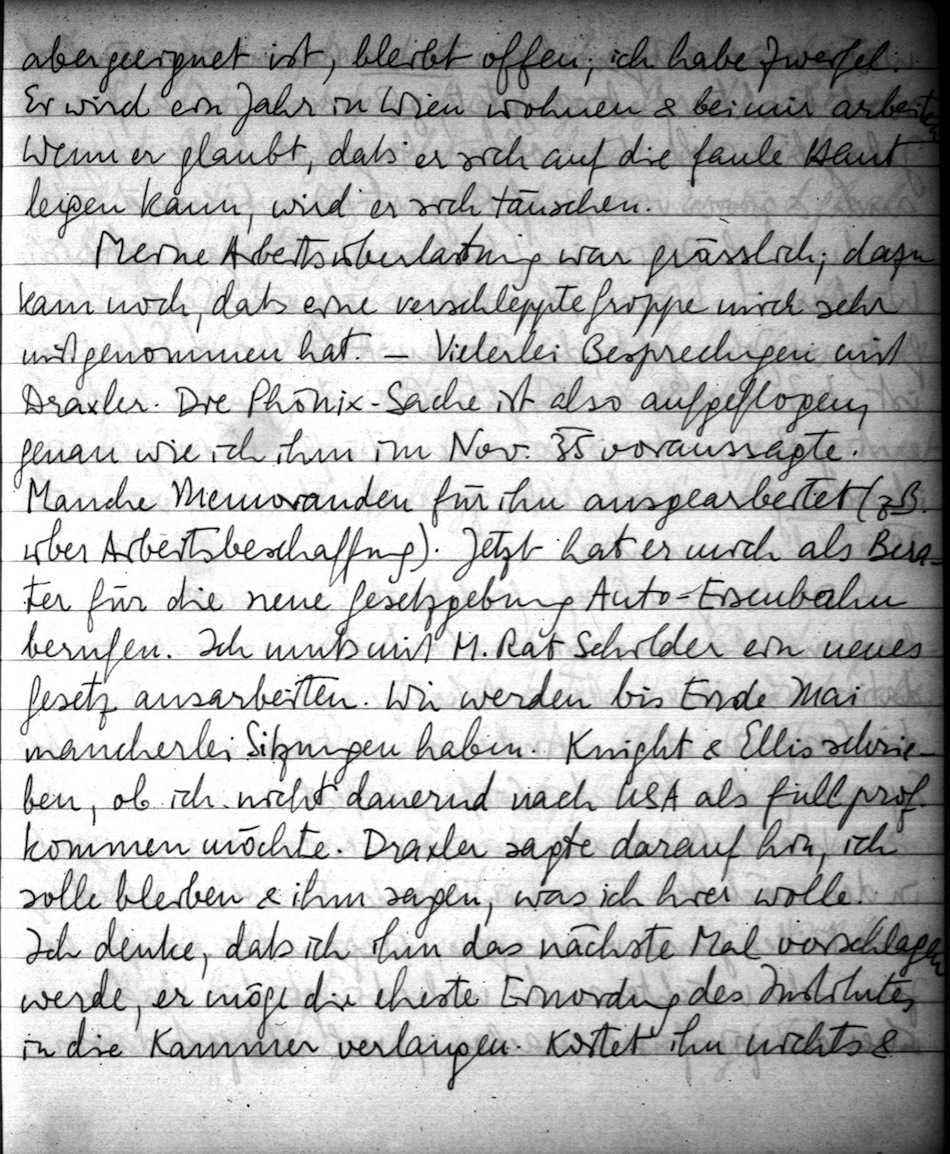 aber geeignet ist, bleibt offen; ich habe Zweifel.
Er wird ein Jahr in Wien wohnen & bei mir arbeiten
Wenn er glaubt, daß er sich auf die faule Haut
legen kann, wird er sich täuschen.
Meine Arbeitsüberlastung war grässlich; dazu
kam noch, daß eine verschleppte Grippe mich sehr
mitgenommen hat. – Vielerlei Besprechungen mit
Draxler. Die Phönix-Sache ist also aufgeflogen,
genau wie ich ihm im Nov. 35 voraussagte.
Manche Memoranden für ihn ausgearbeitet (z.B.
über Arbeitsbeschaffung). Jetzt hat er mich als Bera-
ter für die neue Gesetzgebung Auto=Eisenbahn
berufen. Ich muß mit M. Rat Schilder ein neues
Gesetz ausarbeiten. Wir werden bis Ende Mai
mancherlei Sitzungen haben. Knight & Ellis schrie-
ben, ob ich nicht dauernd nach USA als full prof.
kommen möchte. Draxler sagte darauf hin, ich
solle bleiben & ihm sagen, was ich hier wolle.
Ich denke, daß ich ihm das nächste Mal vorschlagen
werde, er möge die eheste Einordung des Institutes
in die Kammer verlangen. Kostet ihn nichts &